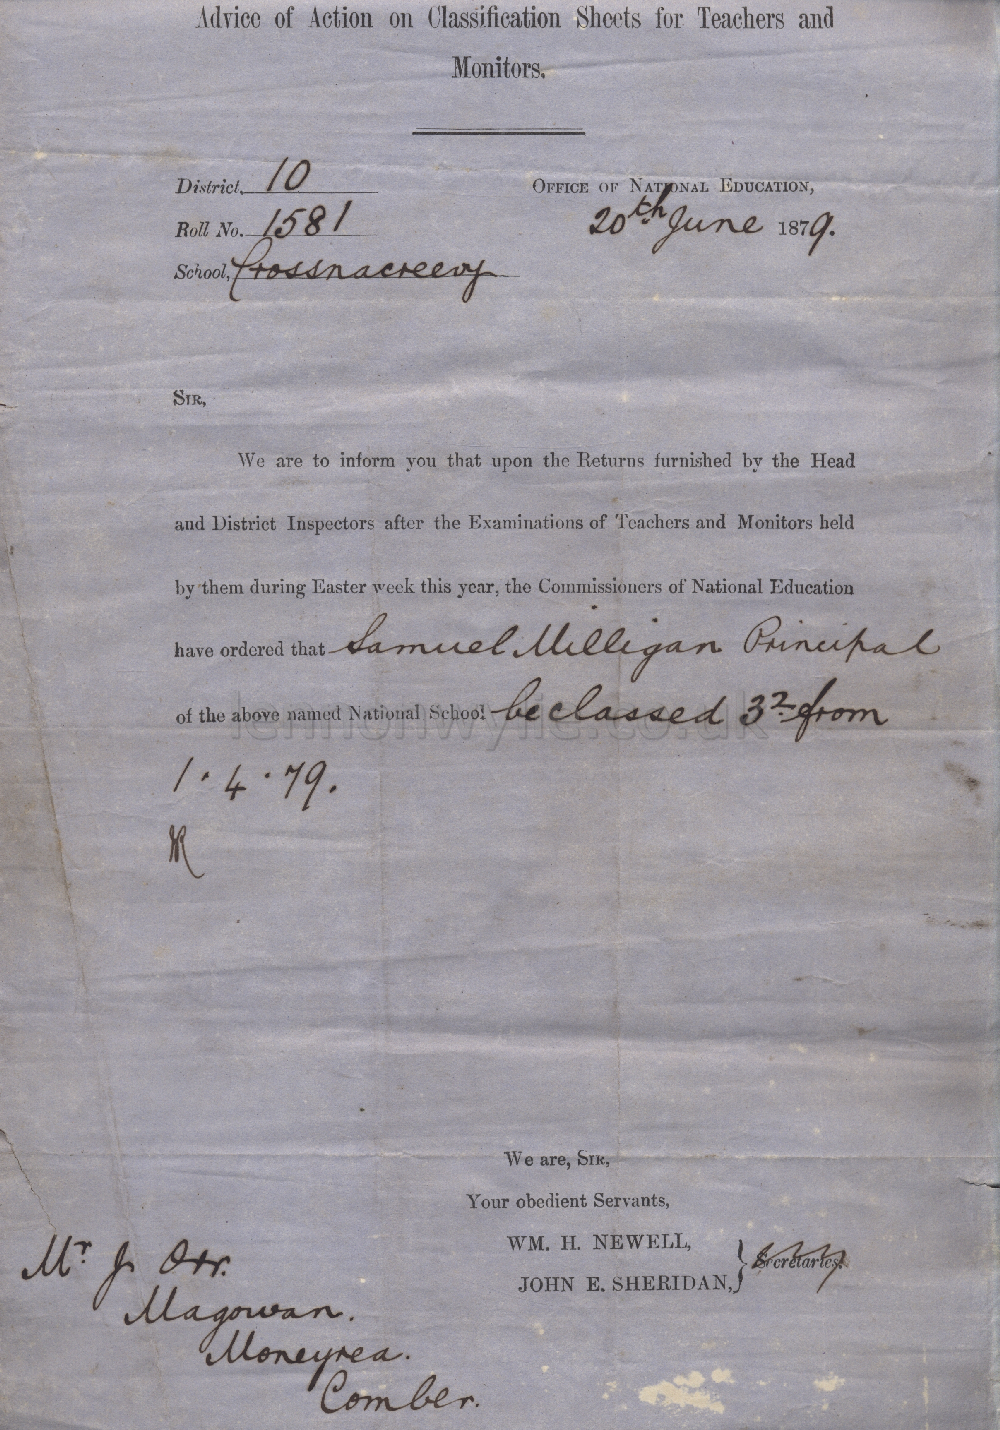 Advice of Action on Classification Sheets for Teachers and
Monitors.
District, 10
Roll No. 1581
School, Crossnacreevy
OFFICE OF NATIONAL EDUCATION,
20th June 1879.
SIR,
We are to inform you that upon the Returns furnished by the Head
and District Inspectors after the Examinations of Teachers and Monitors held
by them during Easter week this year, the Commissioners of National Education
have ordered that Samuel Milligan Principal
of the above named National School be classed 3² from
1.4.79.
lennonwylie.co.uk
We are, SIR,
Your obedient Servants,
WM. H. NEWELL,
JOHN E. SHERIDAN, } Secretaries.
Mr J Orr.
Magowan.
Moneyrea.
Comber.